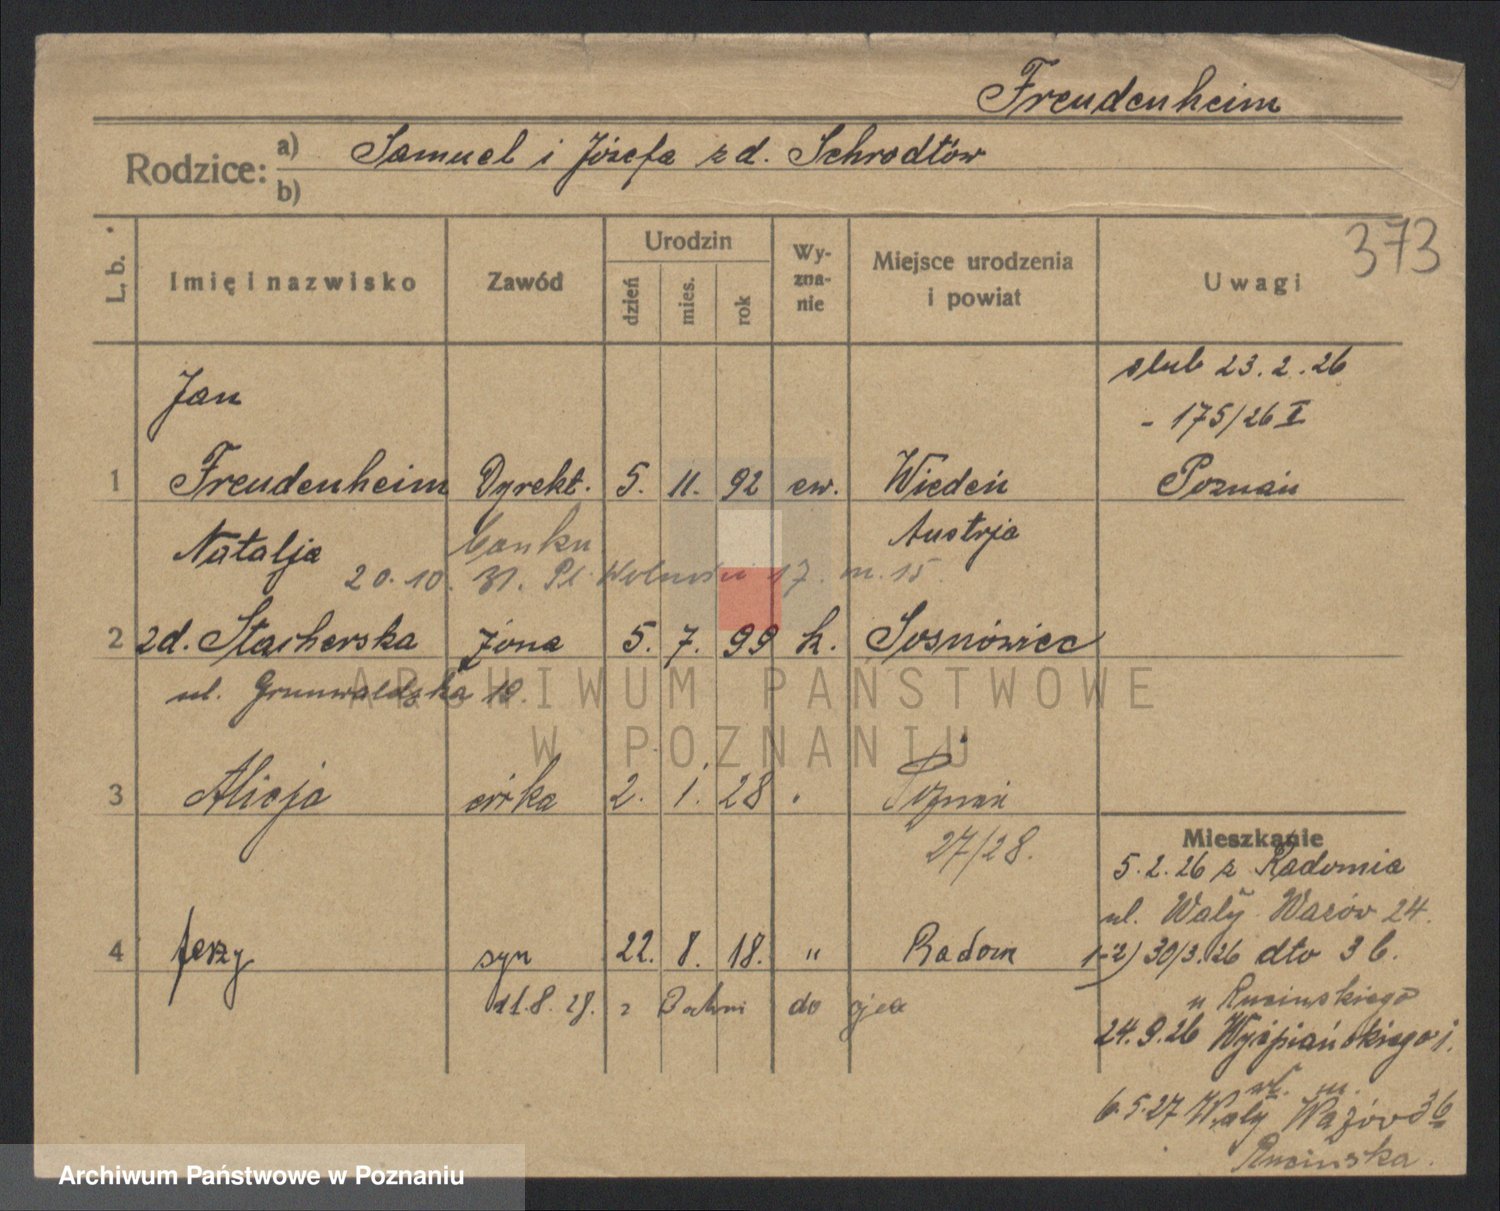 Freudenheim
Rodzice: a) Samuel i Józefa z d. Schrodtów
b)
373
L. b. Imię i nazwisko Zawód Urodzin dzień mies. rok Wy-zna-nie Miejsce urodzenia i powiat Uwagi
ślub 23. 2. 26
- 175/26 I
Jan
1 Freudenheim Dyrekt. 5. 11. 92 ew. Wiedeń Poznań
Natalja banku Austrja
20. 10. 31. Pl. Wolności 17. m. 15.
2 zd. Stacherska żona 5. 7. 99 k. Sosnowiec
ul. Grunwaldzka 10.
3 Alicja córka 2. 1. 28 " Poznań
27/28.
Mieszkanie
5. 2. 26 z Radomia
ul. Wały Wazów 24.
4 Jerzy syn 22. 8. 18. " Radom
1-2) 30/3. 26 dto 36.
11. 8. 28. z Bochni do ojca
u Rucińskiego
24. 9. 26 Wyśpiańskiego
6. 5. 27 Wały Wazów 36
Rucińska.
ARCHIWUM PAŃSTWOWE
W POZNANIU
Archiwum Państwowe w Poznaniu